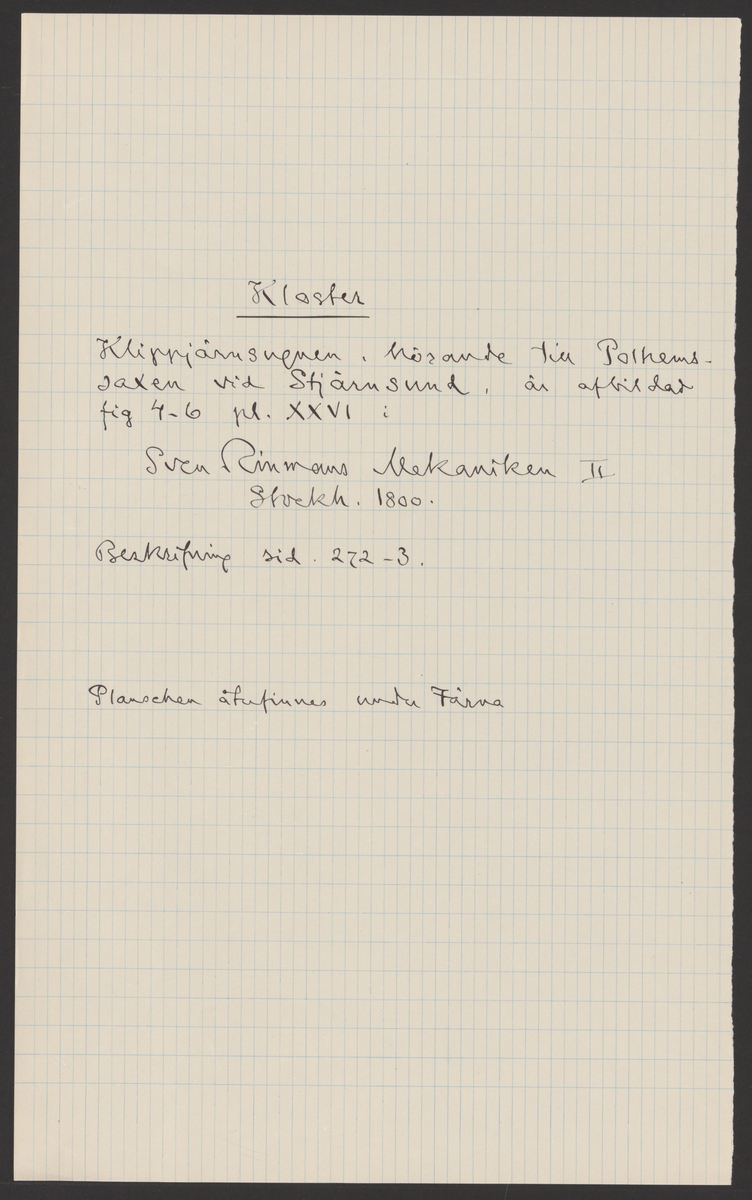 Kloster
Klippjärnsugnen, hörande till Polhems-
saxen vid Stjärnsund, är afbildad
fig 4-6 pl. XXVI i
Sven Rinmans Mekaniken II
Stockh. 1800.
Beskrifning sid. 272-3.
Planschen återfinnes under Färna